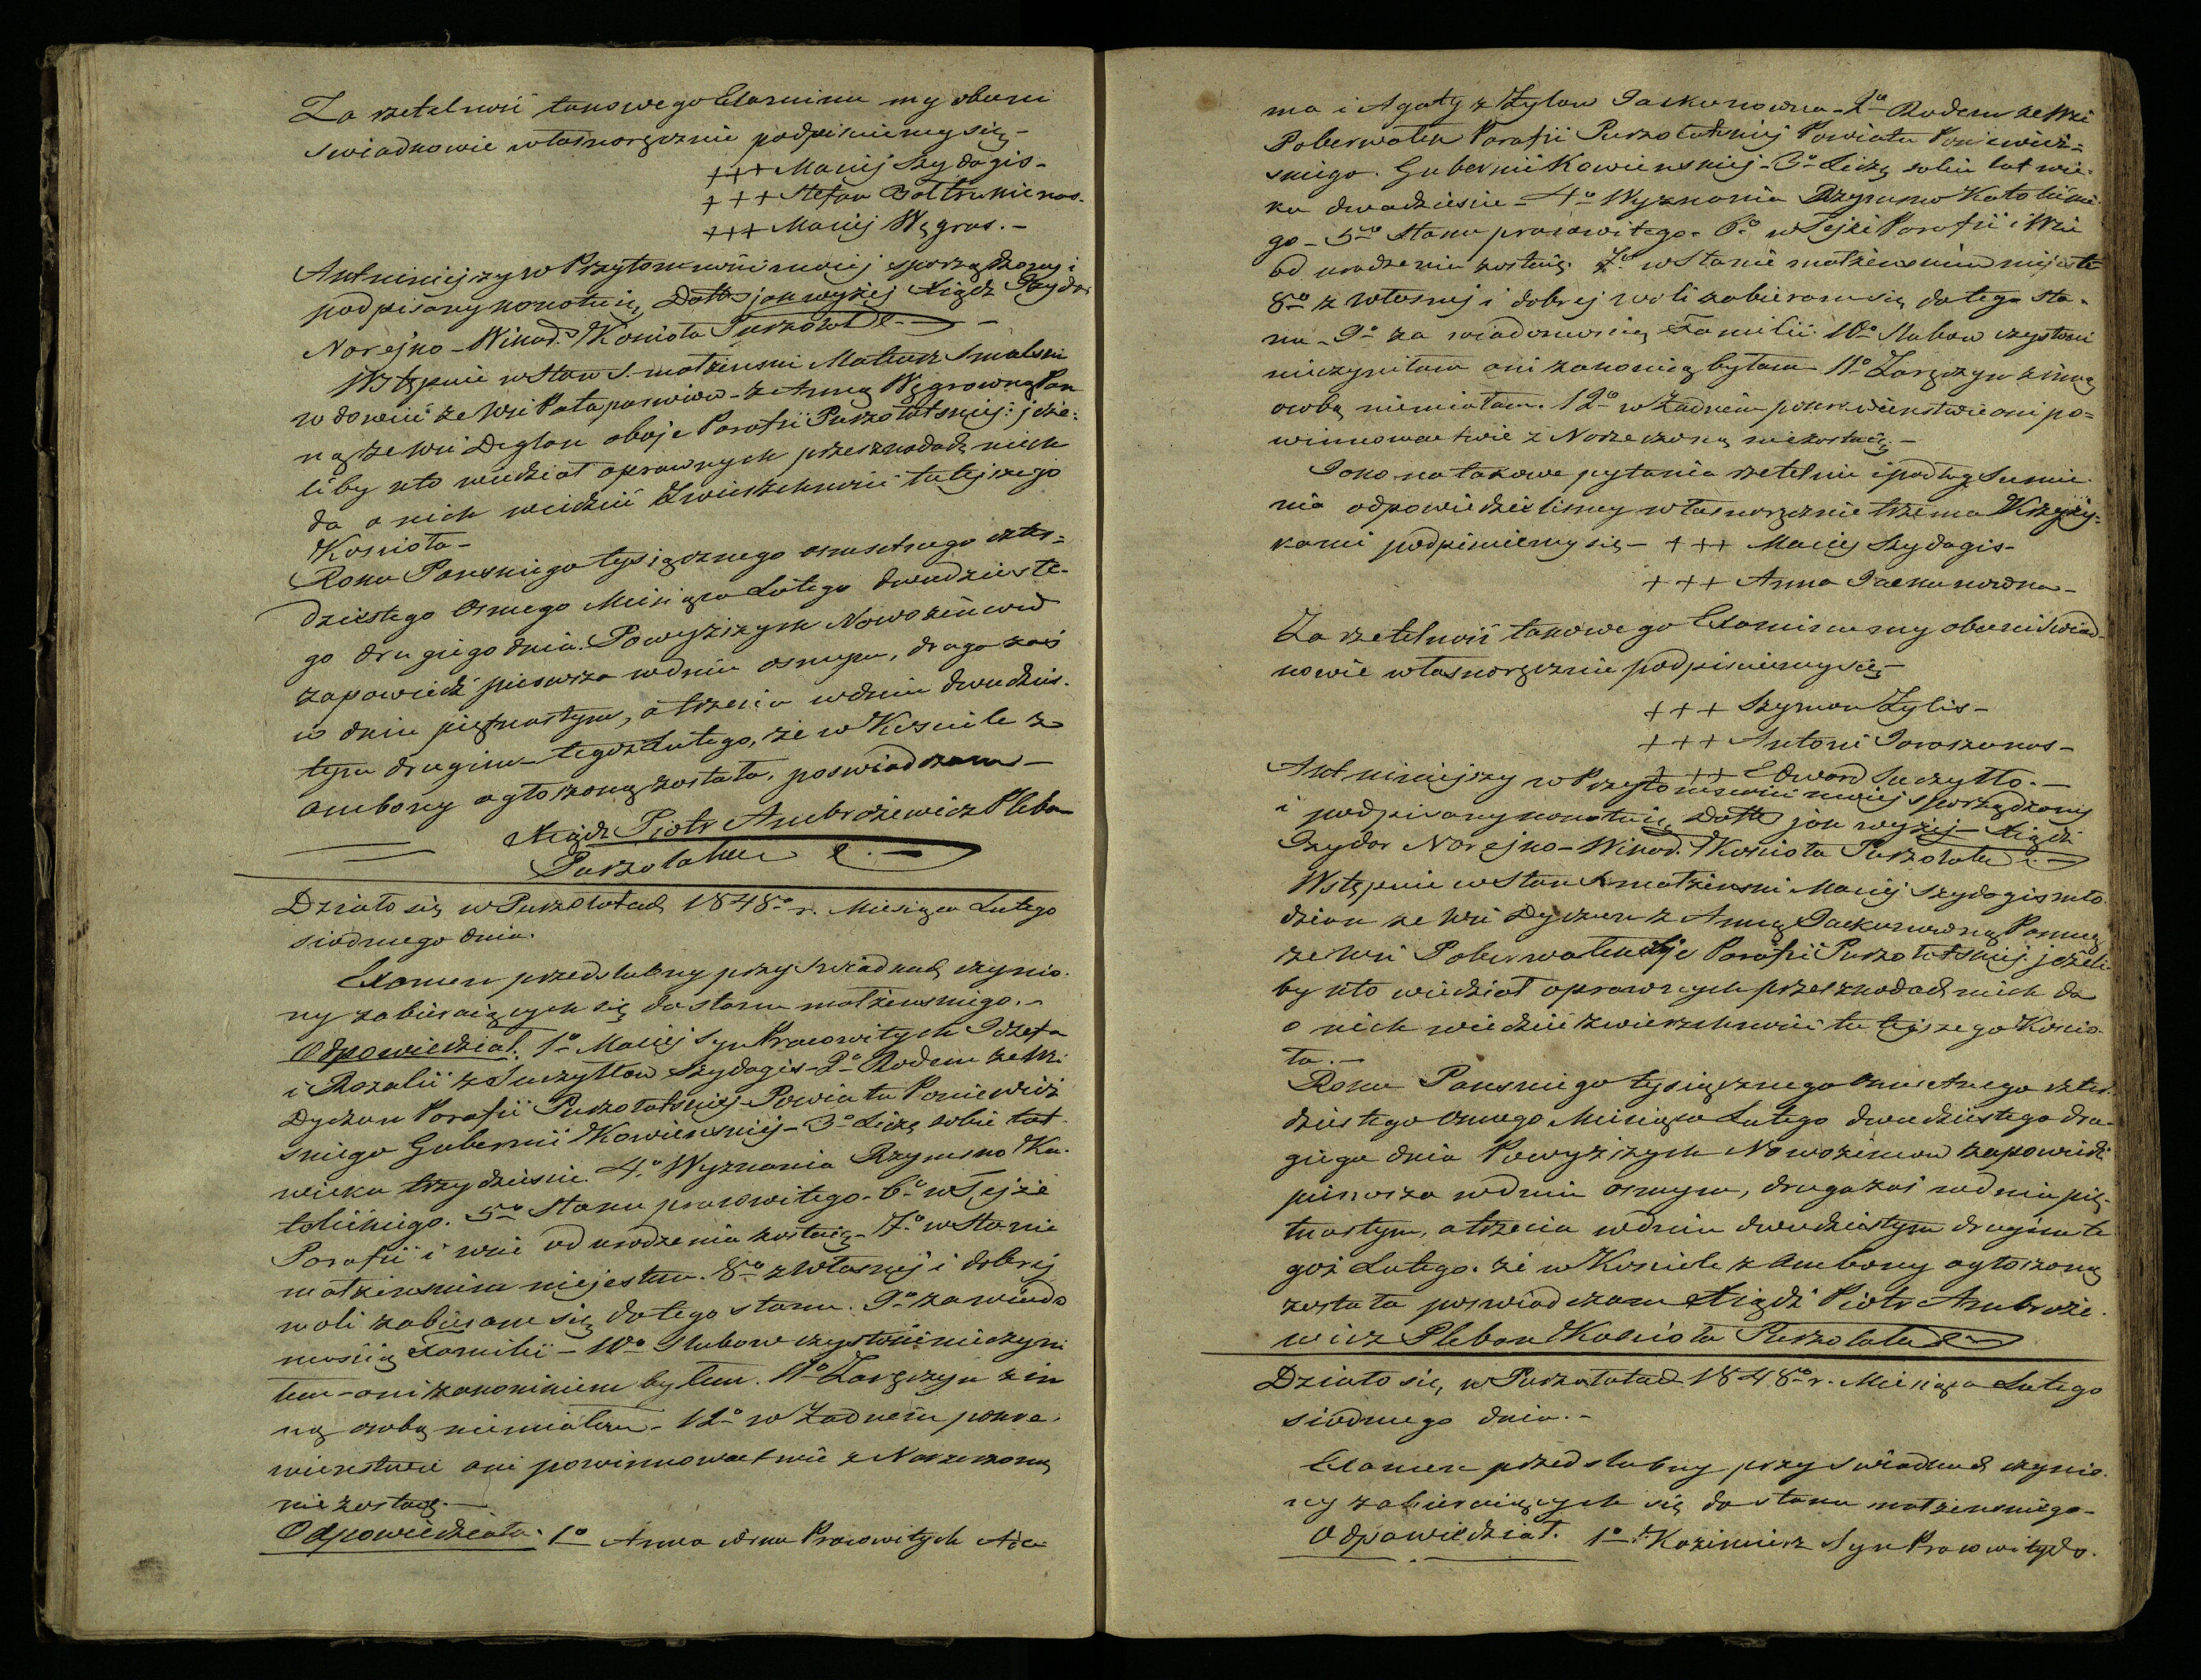 Za rzetelność takowego Examinu my obecni
swiadkowie własnoręcznie podpisuiemy się -
+++ Maciej Szydagis -
+++ Stefan Bołtrukienas.
+++ Maciej Węgras. -
Akt niniejszy w Przytomności moiej sporządzony i
podpisany konotuię Datto jak wyżej Xiądz Izydor
Norejko - Wikar. Kościoła Puszołat. -
Wstępuie w Stan S. małżeński Mateusz Smalski
wdowiec ze Wsi z Anną Węgrowną Pan
ną ze Wsi Deglan oboje Parafii Puszołatskiej: jeże:
liby kto wiedział o prawnych przeszkodach niech
da o nich wiedzieć Zwierzchności tutejszego
Kościoła -
Roku Pańskiego tysiącznego osmsetnego czter=
dziestego Osmego Miesiąca Lutego dwudzieste-
go drugiego dnia. Powyższych Nowożeńców
zapowiedź pierwsza w dniu osmym, druga zaś
w dniu piętnastym, a trzecia w dniu dwudzies-
tym drugim tegoż Lutego, że w Kościele z
ambony ogłoszoną została, poswiadczam -
Xiądz Piotr Ambrożewicz Pleban
Puszołatski
Działo się w Puszołatach 1848o r. Miesiąca Lutego
siodmego dnia.
Examen przedslubny przy Swiadkach czynio-
ny zabieraiących się do stanu małżenskiego. -
Odpowiedział. 1o Maciej Syn Pracowitych Józefa
i Rozalii z Suczyłłow Szydagis - 2o Rodem ze Wsi
Dyczun Parafii Puszołatskiej Powiatu Poniewież
skiego Gubernii Kowienskiej - 3o Liczę sobie lat
wieku trzydziesci. 4o Wyznania Rzymsko Ka-
tolickiego. 5o Stanu pracowitego. 6o w Tejże
Parafii i wsi od urodzenia zostaię - 7o w Stanie
małżenskim nie jestem. 8o z własnej i dobrej
woli zabieram się do tego stanu. 9o za wiado
mością Familii - 10o Slubow czystości nie czyni
łem - ani zakonnikiem byłem. 11o Zaręczyn z in
ną osobą nie miałem - 12o w Żadném pokre-
wieństwie ani powinnowactwie z Narzeczoną
nie zostaię. -
Odpowiedziała. 1o Anna córka Pracowitych Ada-
ma i Agaty z Żylow Jackunowna - 2o Rodem ze Wsi
Poberwalek Parafii Puszołatskiej Powiatu Poniewież=
skiego. Gubernii Kowienskiej - 3o Liczę sobie lat wie-
ku dwadziescie - 4o Wyznania Rzymsko Katolickie-
go - 5o Stanu pracowitego. 6o w Tejże Parafii i Wsi
od urodzenia zostaię. 7o w Stanie małżenskim nie jestem
8o z własnej i dobrej woli zabieram się do tego sta-
nu - 9o za wiadomością Familii 10o Slubow czystości
nie czyniłam ani zakonnicą byłam 11o Zaręczyn z inną
osobą nie miałam. 12o w Żadném pokrewieństwie ani po=
winnowactwie z Narzeczoną nie zostaię. -
Jako na takowe pytania rzetelnie i podług Sumie-
nia odpowiedzielismy własnoręcznie trzema Krzyży-
kami podpisuiemy się - +++ Maciej Szydagis -
+++ Anna Jackunowna -
Za rzetelność takowego Examinu my obecni Swiad-
kowie własnoręcznie podpisuiemy się -
+++ Szymon Żylis -
+++ Antoni Jaraszunas -
+++ Edward Suczyłło. -
Akt niniejszy w Przytomności moiej sporządzony
i podpisany konotuię Datto jak wyżej - Xiądz
Izydor Norejko - Wikar. Kościoła Puszołat
Wstępuie w Stan S. małżeński Maciej Szydagis mło-
dzian ze Wsi Dyczun z Anną Jackunowną Panną
ze Wsi Poberwalek oboje Parafii Puszołatskiej jeżeli
by kto wiedział o prawnych przeszkodach niech da
o nich wiedzieć zwierzchności tutejszego Koscio-
ła. -
Roku Pańskiego tysiącznego Osmsetnego czter-
dziestego Osmego Miesiąca Lutego dwudziestego dru-
giego dnia Powyższych Nowożeńcow zapowiedź
pierwsza w dniu osmym, druga zaś w dniu pię-
tnastym, a trzecia w dniu dwudziestym drugim te
goż Lutego. że w Kościele z Ambony ogłoszoną
została poswiadczam Xiądz Piotr Ambroże-
wicz Pleban Kościoła Puszołat
Działo się, w Puszołatach 1848o r. Miesiąca Lutego
siodmego dnia. -
Examen przedslubny przy Swiadkach czynio-
ny zabieraiących się do stanu małżenskiego -
Odpowiedział. 1o Kazimierz Syn Pracowitych